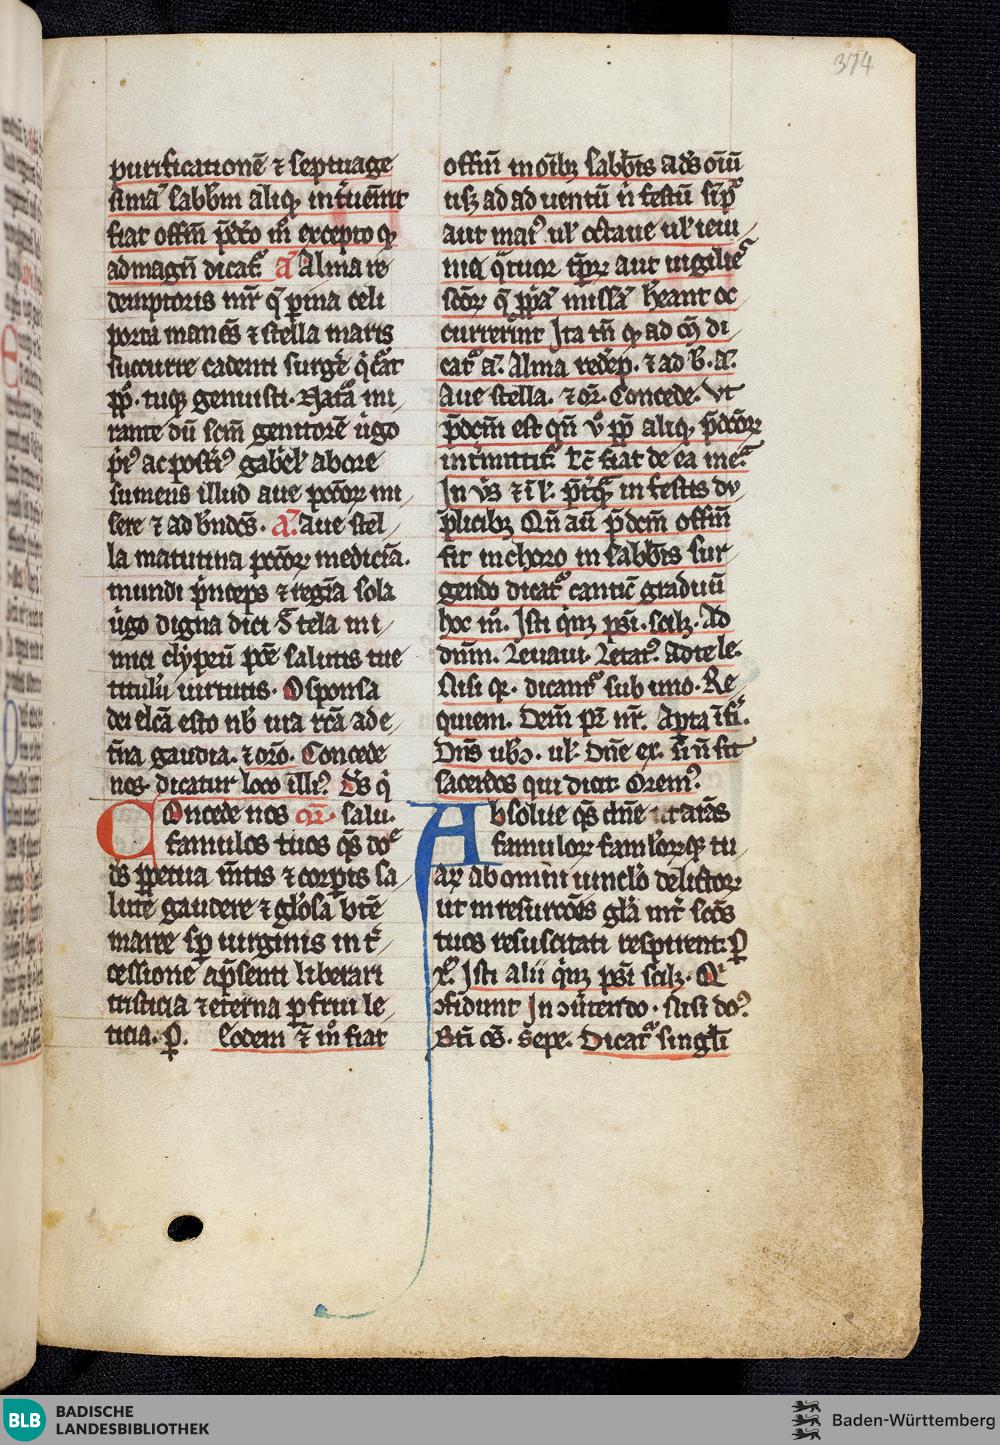 374
purificationē ⁊ septuage
simā sabbm̄ aliq̄ int̄ueīt
fiat offm̄ p̄dc̄o m̄ excepto qꝫ
ad magn̄ dicat᷑ a᷑ Alma re
demptoris mr̄ q̄ ꝑuia celi
porta manēs ⁊ stella maris
succurre cadenti surgē q̄ cūrt
pp̄. tuqꝫ genuisti. Natā mi
rante dū scm̄ genitorē ūgo
p̄i᷒ ac postīi᷒ gab̄lel abore
sumens illud aue pccōꝝ mi
sere ⁊ ad bn̄dcs̄. a᷑ aue stel
la matutina pccōꝝ medicīa.
mundi p̄nceps ⁊ regīa sola
ūgo digna dici Stela ini
mici clypeū pōe salutis tue
titulū uirtutis. O sponsa
dei elcā esto nb̄ uia rcā ad e
t̄na gaudia. ⁊ or̄o. Concede
nos. dicatur loco illi᷒ Ds̄ q̄
Concede nos or̄. salu.
famulos tuos qs̄ do᷑
ds̄ ꝑpetua m̄tis ⁊ corp̄is sa
lute gaudere ⁊ gl̄osa bt̄e
marie sꝑ uirginis int̄
cessione a p̄senti liberari
tristicia ⁊ eterna ꝑfrui le
ticia. P̄. Eodem ⁊ m̄o fiat
offm̄ in oīb; sabb̄is ad s̄ oīu
usꝫ ad aduentū n̄ festū sīp̄
aut mai᷒ ul̄ octaue ul̄ ieiu
nia q̄tuor tp̄ꝝ aut uigilie
sc̄oꝝ q̄ ꝓp̄a missā h̄eant oc
currerint Ita tn̄ qꝫ ad m̄ di
cat᷑ a᷑. Alma redēp. ⁊ ad b̄. a᷑.
aue stella. ⁊ or̄. Concede. Ut
p̄dcm̄ est qn̄ v̄ pp̄ aliq̄ p̄dcōꝝ
int̄mittit᷑ tc̄ fiat de ea me᷑
In v̄s ⁊ ī l̄. p̄t̄qꝫ in festis du
plicib; Qn̄ aū p̄dcm̄ offm̄
fit in choro in sabb̄is sur
gendo dicat᷑ cantic̄ graduū
hoc m̄. Isti q̄inꝫ ps̄i. scilꝫ. Ad
dnm̄. Leuaui. Letat᷒. ad te le.
Nisi qꝛ. dicant᷑ sub uno. Re
quiem. Dein̄ pr̄ nr̄. A porta īfi᷑.
Dn̄s uob᷒. ul̄. Dn̄e ex. si n̄ sit
sacerdos qui dicit Orem᷒
Absolue qs̄ dn̄e aīas
famuloꝝ famlaꝝqꝫ tu
aꝝ ab omni uinclo delictoꝝ
ut in resurcōis gl̄a int̄ sc̄os
tuos resuscitati respirent. P̄
x̄. Isti alii q̄inꝫ ps̄i scilꝫ. Q᷑
ꝯfidunt In ꝯuertendo. Nisi do᷒
Bt̄i os̄. Sepe. Dicat᷑ singl̄i
BLB BADISCHE
LANDESBIBLIOTHEK
Baden-Württemberg